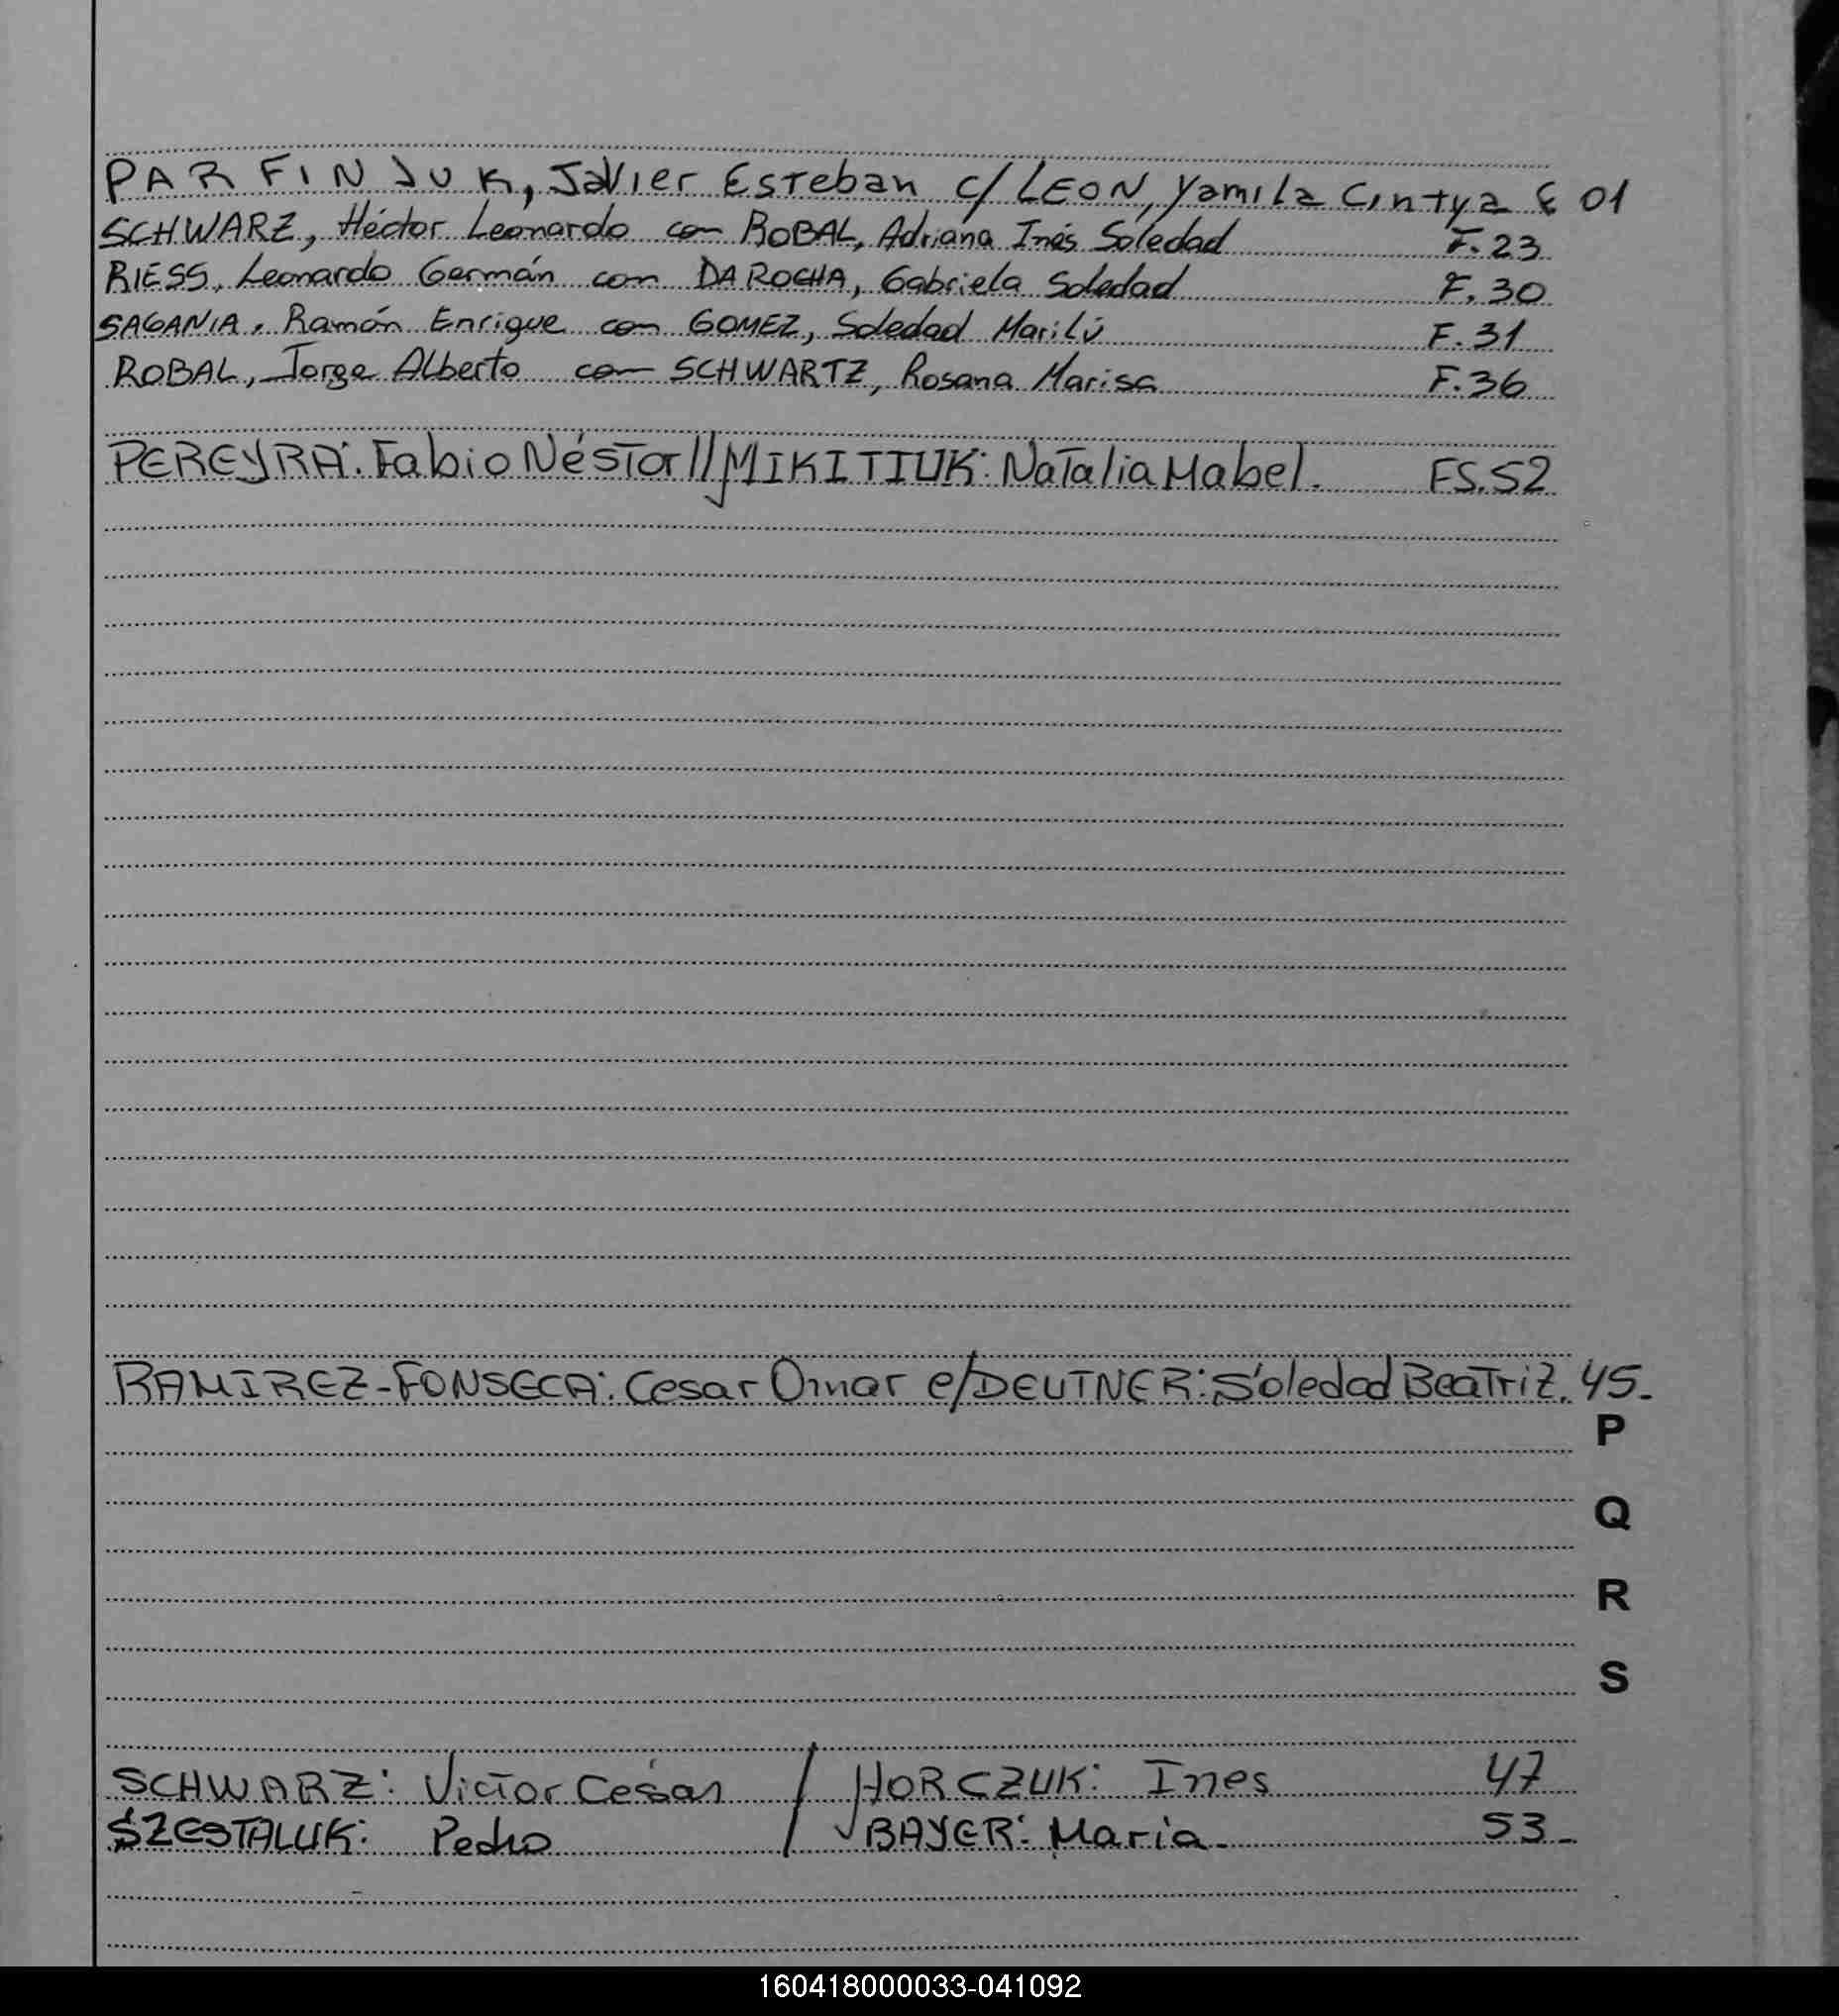 PARFINJUK, Javier Esteban c/ LEON, Yamila Cintya F 01
SCHWARZ, Héctor Leonardo con ROBAL, Adriana Inés Soledad F. 23
RIESS, Leonardo Germán con DA ROCHA, Gabriela Soledad F. 30
SAGANIA, Ramón Enrique con GOMEZ, Soledad Marilú F. 31
ROBAL, Jorge Alberto con SCHWARTZ, Rosana Marisa F. 36
PEREYRA: Fabio Néstor // MIKITIUK: Natalia Mabel. FS. 52
RAMIREZ-FONSECA: Cesar Omar c/ DEUTNER: Soledad Beatriz. 45-
P
Q
R
S
SCHWARZ: Victor Cesar / HORCZUK: Ines 47
SZESTALUK: Pedro / BAYER: Maria- 53-
160418000033-041092